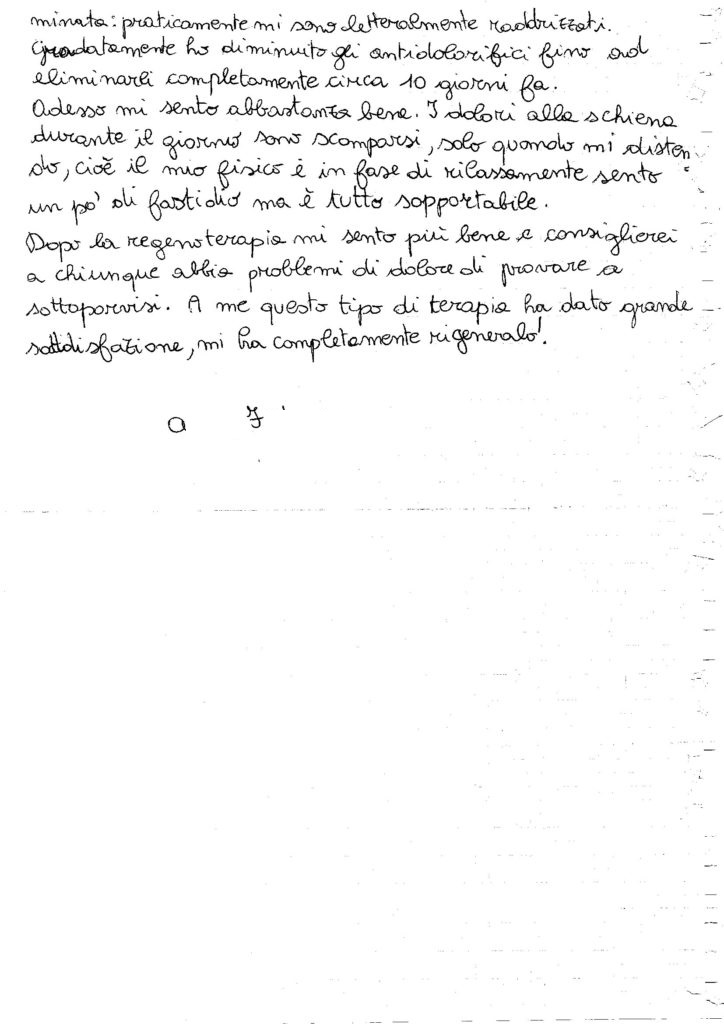 minata: praticamente mi sono letteralmente raddrizzati.
Gradatamente ho diminuito gli antidolorifici fino ad
eliminarli completamente circa 10 giorni fa.
Adesso mi sento abbastanza bene. I dolori alla schiena
durante il giorno sono scomparsi, solo quando mi disten
do, cioè il mio fisico è in fase di rilassamente sento
un po' di fastidio ma è tutto sopportabile.
Dopo la regenoterapia mi sento più bene e consiglierei
a chiunque abbia problemi di dolore di provare a
sottoporvisi. A me questo tipo di terapia ha dato grande
soddisfazione, mi ha completamente rigeneralo!